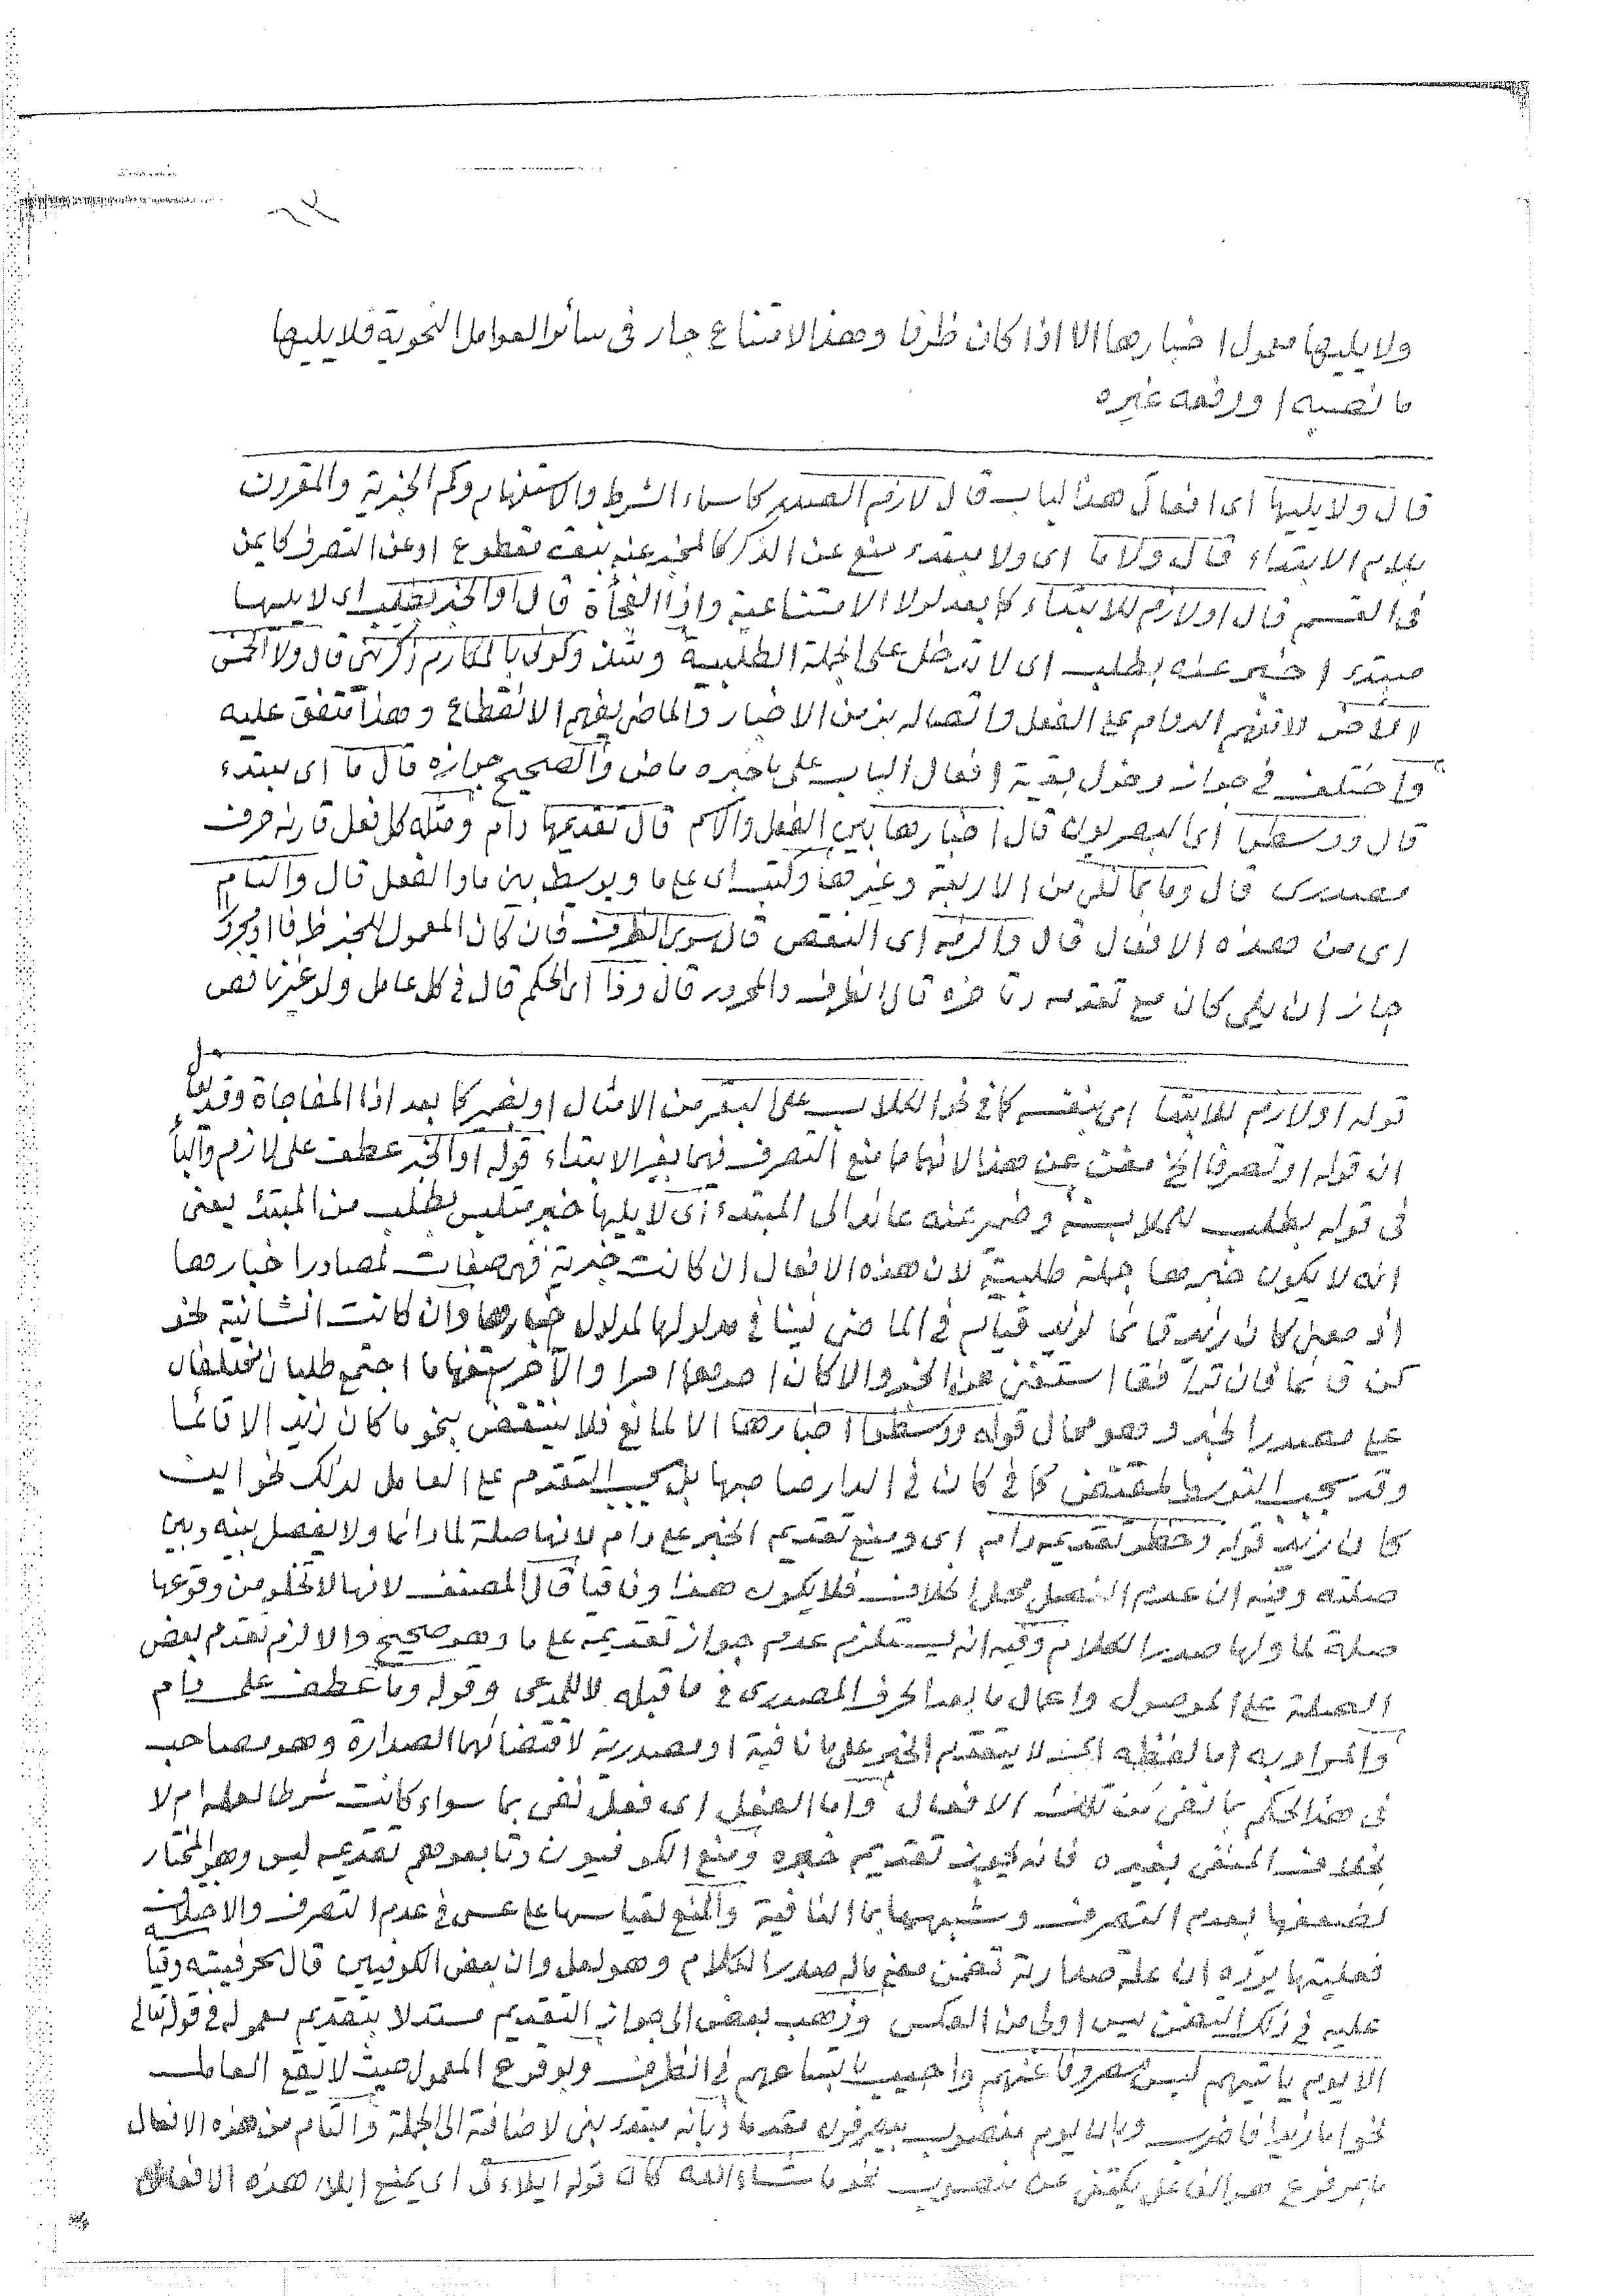 ولا يليها معمول اخبارها الا اذا كان ظرفا وهذا الامتناع جار فى سائر العوامل النحوية فلا يليها
ما نصبه او رفعه غيره
قال ولا يليها اى افعال هذا الباب قال لازم الصدر كاسماء الشرط والاستفهام وكم الخبرية والمقرون
بلام الابتداء قال ولا ما اى ولا مبتدء منع عن الذكر كالمخبر عنه بنعت مقطوع او عن التصرف كايمن
فى القسم قال او لازم للابتداء كما بعد لولا الامتناعية واذا الفجأة قال او الخبر بطلب اى لا يليها
مبتدء اخبر عنه بطلب اى لا تدخل على الجملة الطلبية وشذ وكونى بالمكارم ذكرينى قال ولا
الماضى لانها تفهم الدوام على الفعل واتصاله بزمن الاخبار والماضى يفهم الانقطاع وهذا متفق عليه
واختلف فى جواز دخول بقية افعال الباب على ما خبره ماض والصحيح جوازه قال ما اى مبتدء
قال ووسطوا اى البصريون قال اخبارها بين الفعل والاسم قال تقديمها دام ومثله كل فعل قارنه حرف
مصدرى قال وما بما نفى من الاربعة وغيرها وكتب اى على ما ويوسط بين ما والفعل قال والتام
اى من هذه الافعال قال والرفع اى النقص قال سوى الظرف فان كان المعمول للخبر ظرفا او مجرورا
جاز ان يلى كان مع تقدمه وتاخره قال الظرف والمجرور قال وذا اى الحكم قال فى كل عامل ولو غير ناقص
قوله او لازم للابتدا اى بنفسه كما فى نحو الكلاب على البقر من الامثال او بغيره كما بعد اذا المفاجاة وقد
ان قوله او تصرفا الخ مغن عن هذا لانهما ما منع التصرف فيهما بغير الابتداء قوله او الخبر عطف على لازم والباء
فى قوله بطلب للملابسة وضمير عنه عائد الى المبتدء اى لا يليها خبر متلبس بطلب من المبتدء يعنى
انه لا يكون خبرها جملة طلبية لان هذه الافعال ان كانت خبرية فهى صفات لمصادر اخبارها
اذ معنى كان زيد قائما لزيد قيام فى الماضى فينافى مدلولها لمدلول اخبارها وان كانت انشائية نحو
كن قائما فان توافقا استغنى عن الخبر والا كان احدهما امرا والآخر استفهاما اجتمع طلبان مختلفان
على مصدر الخبر وهو محال قوله ووسطوا اخبارها الا لمانع فلا ينتقض بنحو ما كان زيد الا قائما
وقد يجب التوسط لمقتض كما فى كان فى الدار صاحبها بل يجب التقدم على العامل لذلك نحو اين
كان زيد قوله وحظر تقديمه دام اى ومنع تقديم الخبر على دام لانها صلة لما دائما ولا يفصل بينه وبين
صلته وفيه ان عدم الفصل محل الخلاف فلا يكون هذا وفاقيا قال المصنف لانها لا تخلو من وقوعها
صلة لما ولها صدر الكلام وفيه انه يستلزم عدم جواز تقديمه على ما وهو صحيح والا لزم تقدم بعض
الصلة على الموصول واعمال ما بعد الحرف المصدرى فى ما قبله لا للمدعى وقوله وما عطف على دام
والمراد به اما لفظه اى لا يتقدم الخبر على ما نافية او مصدرية لاقتضائهما الصدارة وهو يصاحب
فى هذا الحكم بما نفى من تلك الافعال واما الفعل اى فعل نفى بما سواء كانت شرطا لعمله ام لا
بخلاف المنفى بغيره فانه يجوز تقديم خبره ومنع الكوفيون وتابعوهم تقديمه ليس وهو المختار
لضعفها بعدم التصرف وشبهها بما النافية والمنع لقياسها على عسى فى عدم التصرف والاختلاف
فعليتها يرده ان علة صدارية تضمن معنى ماله صدر الكلام وهو لعل وان بعض الكوفيين قال بحرفيته وقيا
عليه فى ذلك البعض ليس اولى من العكس وذهب بعض الى جواز التقديم مستدلا بتقديم معموله فى قوله تعالى
الا يوم ياتيهم ليس مصروفا عنهم واجيب باتساعهم فى الظرف وبوقوع المعمول حيث لا يقع العامل
نحو اما زيدا فاضرب وبان يوم منصوب بيعرفون مقدما وبانه مبتدء بنى لاضافته الى الجملة والتام من هذه الافعال
ما بمرفوع هو الفاعل يكتفى عن منصوب نحو ما شاء الله كان قوله ايلاء ك اى يمنع ايلاء هذه الافعال